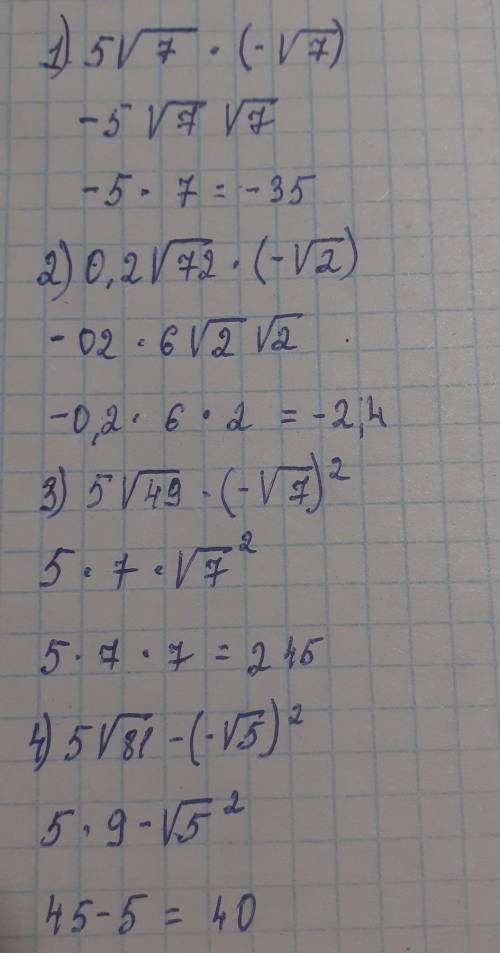 1) 5√7 · (-√7)
-5 √7 √7
-5 · 7 = -35
2) 0,2√72 · (-√2)
-02 · 6√2 √2
-0,2 · 6 · 2 = -2,4
3) 5√49 · (-√7)²
5 · 7 · √7²
5 · 7 · 7 = 245
4) 5√81 - (-√5)²
5 · 9 - √5²
45 - 5 = 40